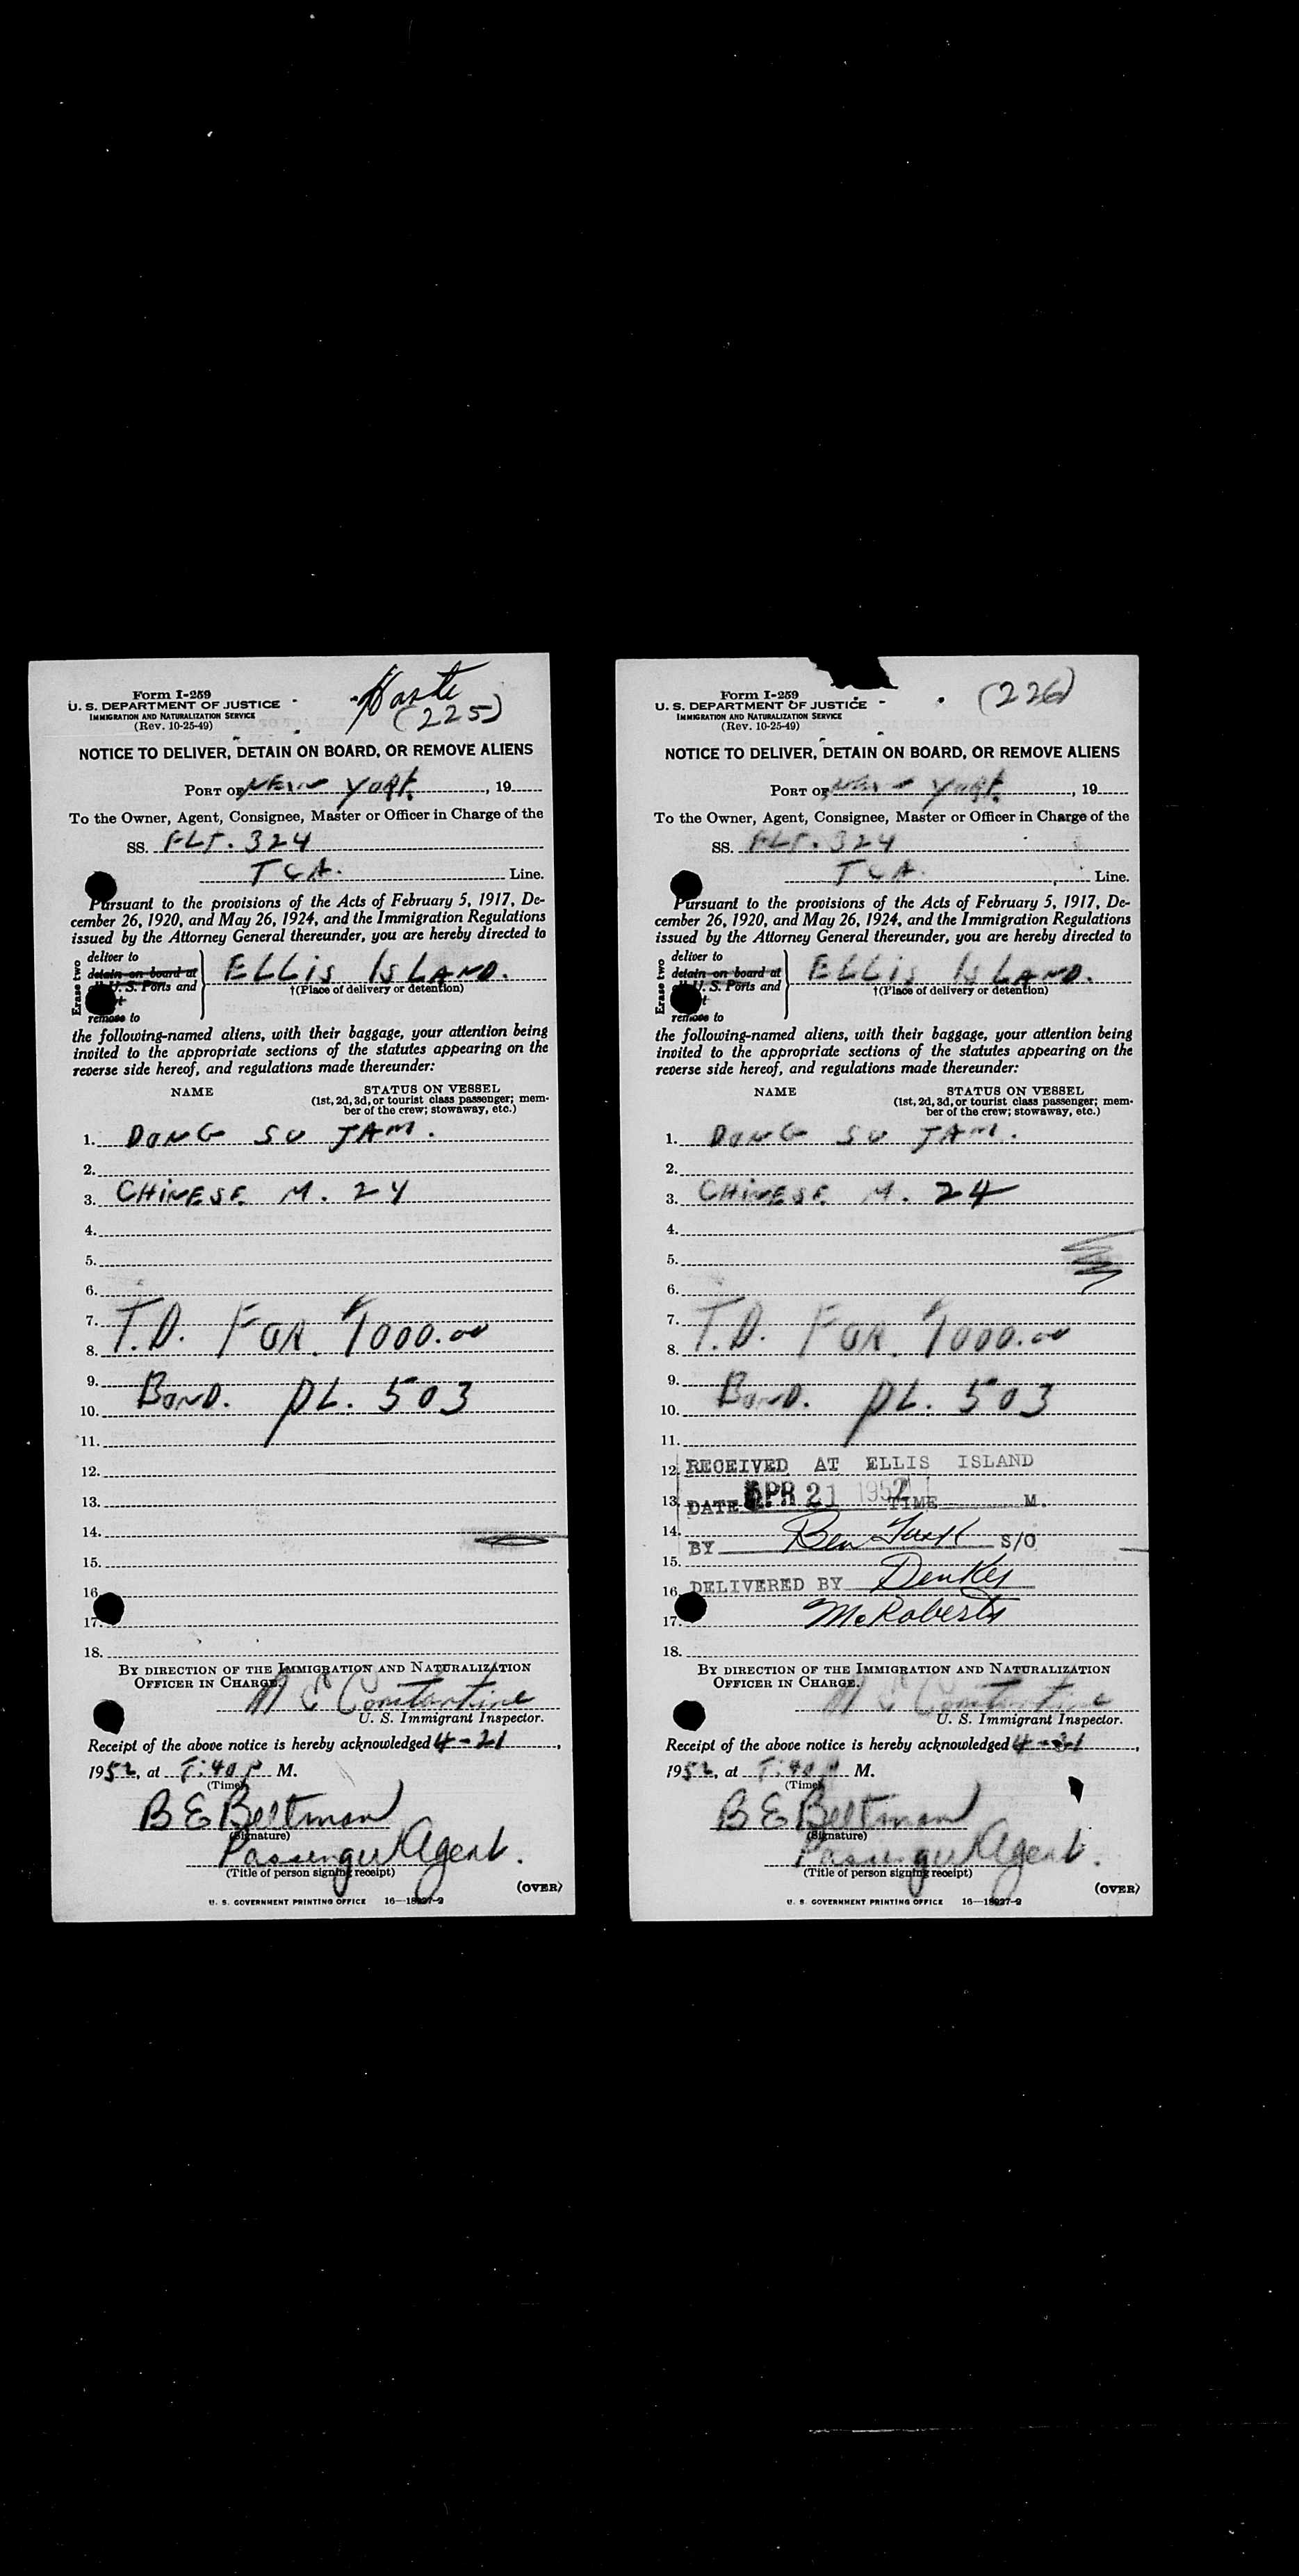 Form I-259
U. S. DEPARTMENT OF JUSTICE
IMMIGRATION AND NATURALIZATION SERVICE
(Rev. 10-25-49)
(225)
NOTICE TO DELIVER, DETAIN ON BOARD, OR REMOVE ALIENS
PORT OF NEW YORK, 19
To the Owner, Agent, Consignee, Master or Officer in Charge of the
SS. FLT. 324
TCA. Line.
Pursuant to the provisions of the Acts of February 5, 1917, De-
cember 26, 1920, and May 26, 1924, and the Immigration Regulations
issued by the Attorney General thereunder, you are hereby directed to
Erase two
deliver to
detain on board at
U. S. Ports and
remove to
ELLIS ISLAND.
†(Place of delivery or detention)
the following-named aliens, with their baggage, your attention being
invited to the appropriate sections of the statutes appearing on the
reverse side hereof, and regulations made thereunder:
NAME STATUS ON VESSEL
(1st, 2d, 3d, or tourist class passenger; mem-
ber of the crew; stowaway, etc.)
1. DONG SO JAM.
2.
3. CHINESE M. 24
4.
5.
6.
7.
8. T.D. FOR $1000.00
9.
10. BOND. PL. 503
11.
12.
13.
14.
15.
16.
17.
18.
BY DIRECTION OF THE IMMIGRATION AND NATURALIZATION
OFFICER IN CHARGE.
Constantine
U. S. Immigrant Inspector.
Receipt of the above notice is hereby acknowledged 4-21,
1952, at :40 P M.
(Time)
B E Beltman
(Signature)
Passenger Agent.
(Title of person signing receipt)
(OVER)
U. S. GOVERNMENT PRINTING OFFICE 16-18927-2
Form I-259
U. S. DEPARTMENT OF JUSTICE
IMMIGRATION AND NATURALIZATION SERVICE
(Rev. 10-25-49)
(226)
NOTICE TO DELIVER, DETAIN ON BOARD, OR REMOVE ALIENS
PORT OF NEW YORK, 19
To the Owner, Agent, Consignee, Master or Officer in Charge of the
SS. FLT. 324
TCA. Line.
Pursuant to the provisions of the Acts of February 5, 1917, De-
cember 26, 1920, and May 26, 1924, and the Immigration Regulations
issued by the Attorney General thereunder, you are hereby directed to
Erase two
deliver to
detain on board at
U. S. Ports and
remove to
ELLIS ISLAND.
†(Place of delivery or detention)
the following-named aliens, with their baggage, your attention being
invited to the appropriate sections of the statutes appearing on the
reverse side hereof, and regulations made thereunder:
NAME STATUS ON VESSEL
(1st, 2d, 3d, or tourist class passenger; mem-
ber of the crew; stowaway, etc.)
1. DONG SO JAM.
2.
3. CHINESE M. 24
4.
5.
6.
7.
8. T.D. FOR $1000.00
9.
10. BOND. PL. 503
11.
12. RECEIVED AT ELLIS ISLAND
13. DATE APR 21 1952 TIME M.
14.
BY Ben S/O
15.
16. DELIVERED BY Denker
17. McRoberts
18.
BY DIRECTION OF THE IMMIGRATION AND NATURALIZATION
OFFICER IN CHARGE.
Constantine
U. S. Immigrant Inspector.
Receipt of the above notice is hereby acknowledged 4-21,
1952, at :40 P M.
(Time)
B E Beltman
(Signature)
Passenger Agent.
(Title of person signing receipt)
(OVER)
U. S. GOVERNMENT PRINTING OFFICE 16-18927-2